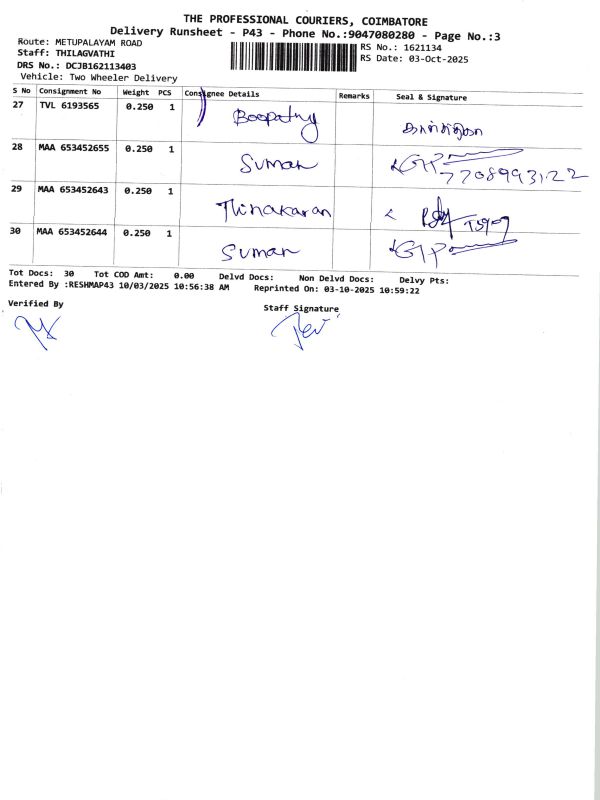 THE PROFESSIONAL COURIERS, COIMBATORE
Delivery Runsheet - P43 - Phone No.:9047080280 - Page No.:3
Route: METUPALAYAM ROAD
Staff: THILAGVATHI
DRS No.: DCJB162113403
Vehicle: Two Wheeler Delivery
RS No.: 1621134
RS Date: 03-Oct-2025
S No Consignment No Weight PCS Consignee Details Remarks Seal & Signature
27 TVL 6193565 0.250 1 Boopathy
28 MAA 653452655 0.250 1 Suman 7708993122
29 MAA 653452643 0.250 1 Thinakaran
30 MAA 653452644 0.250 1 Suman
Tot Docs: 30 Tot COD Amt: 0.00 Delvd Docs: Non Delvd Docs: Delvy Pts:
Entered By :RESHMAP43 10/03/2025 10:56:38 AM Reprinted On: 03-10-2025 10:59:22
Verified By Staff Signature